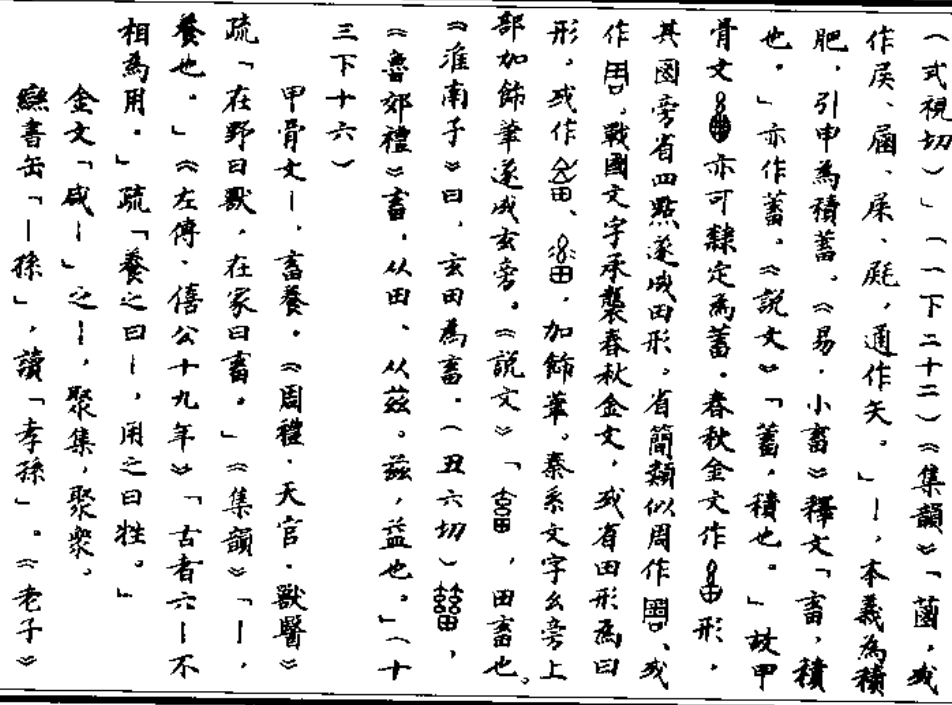 （式視切）」（一下二十二）《集韻》「菌，或
作㞏、屆、屎、㞎，通作矢。」｜，本義為積
肥，引申為積蓄。《易．小畜》釋文「畜，積
也。」亦作蓄。《說文》「蓄，積也。」故甲
骨文亦可隸定為蓄。春秋金文作形，
其囿旁省四點遂成田形，省簡類似周作、或
作，戰國文字承襲春秋金文，或省田形為曰
形，或作、，加飾筆。秦系文字幺旁上
部加飾筆遂成玄旁。《說文》「，田畜也。
《淮南子》曰，玄田為畜．（丑六切），
《魯郊禮》畜，从田、从茲。茲，益也。」（十
三下十六）
甲骨文｜，畜養。《周禮．天官．獸醫》
疏「在野曰獸，在家曰畜。」《集韻》「｜，
養也．」《左傳．僖公十九年》「古者六｜不
相為用．」疏「養之曰｜，用之曰牲。」
金文「咸｜」之｜，聚集，聚眾。
書缶「｜孫」，讀「孝孫」。《老子》